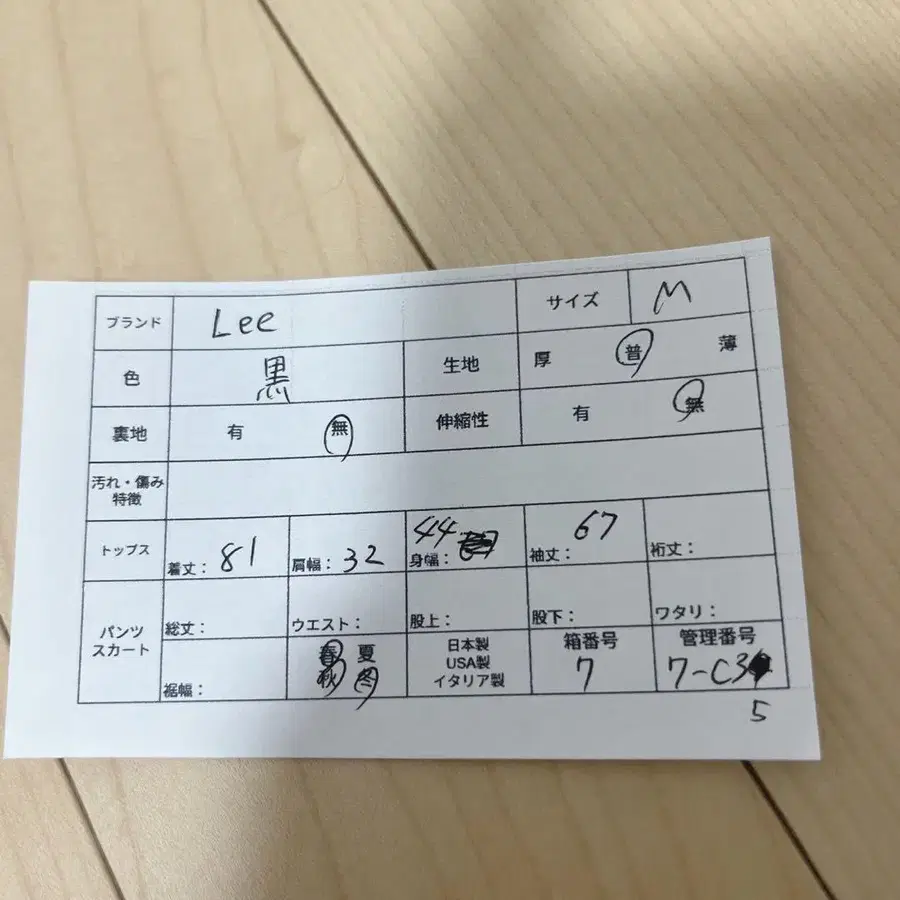 ブランド Lee サイズ M
色 黒 生地 厚 普 薄
裏地 有 無 伸縮性 有 無
汚れ・傷み
特徴
トップス 着丈: 81 肩幅: 32 身幅: 44 袖丈: 67 裄丈:
パンツ
スカート
総丈: ウエスト: 股上: 股下: ワタリ:
裾幅:
春 夏
秋 冬
日本製
USA製
イタリア製
箱番号
7
管理番号
7-C3
5